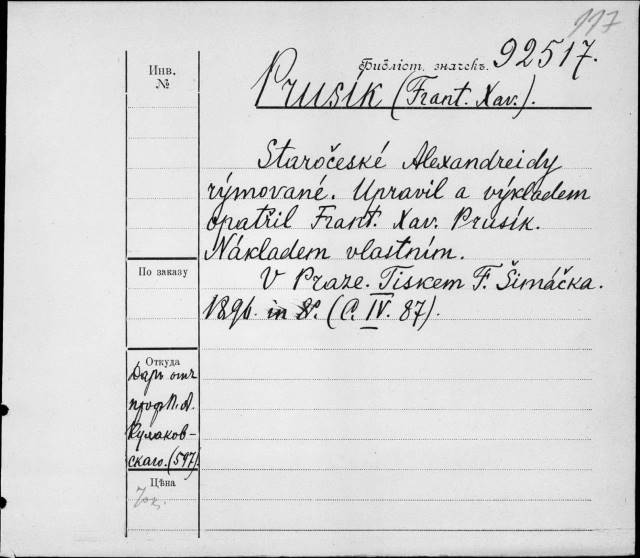 117
Библіот. значекъ. 92517.
Инв.
№
Prusík (Frant. Xav.).
Staročeské Alexandreidy
rýmované. Upravil a výkladem
opatřil Frant. Xav. Prusík.
Nákladem vlastním.
V Praze. Tiskem F. Šimáčka.
1896. in 8º. (C. IV. 87).
По заказу
Откуда
Даръ отъ
проф. П. А.
Кулаков-
скаго. (597).
Цѣна